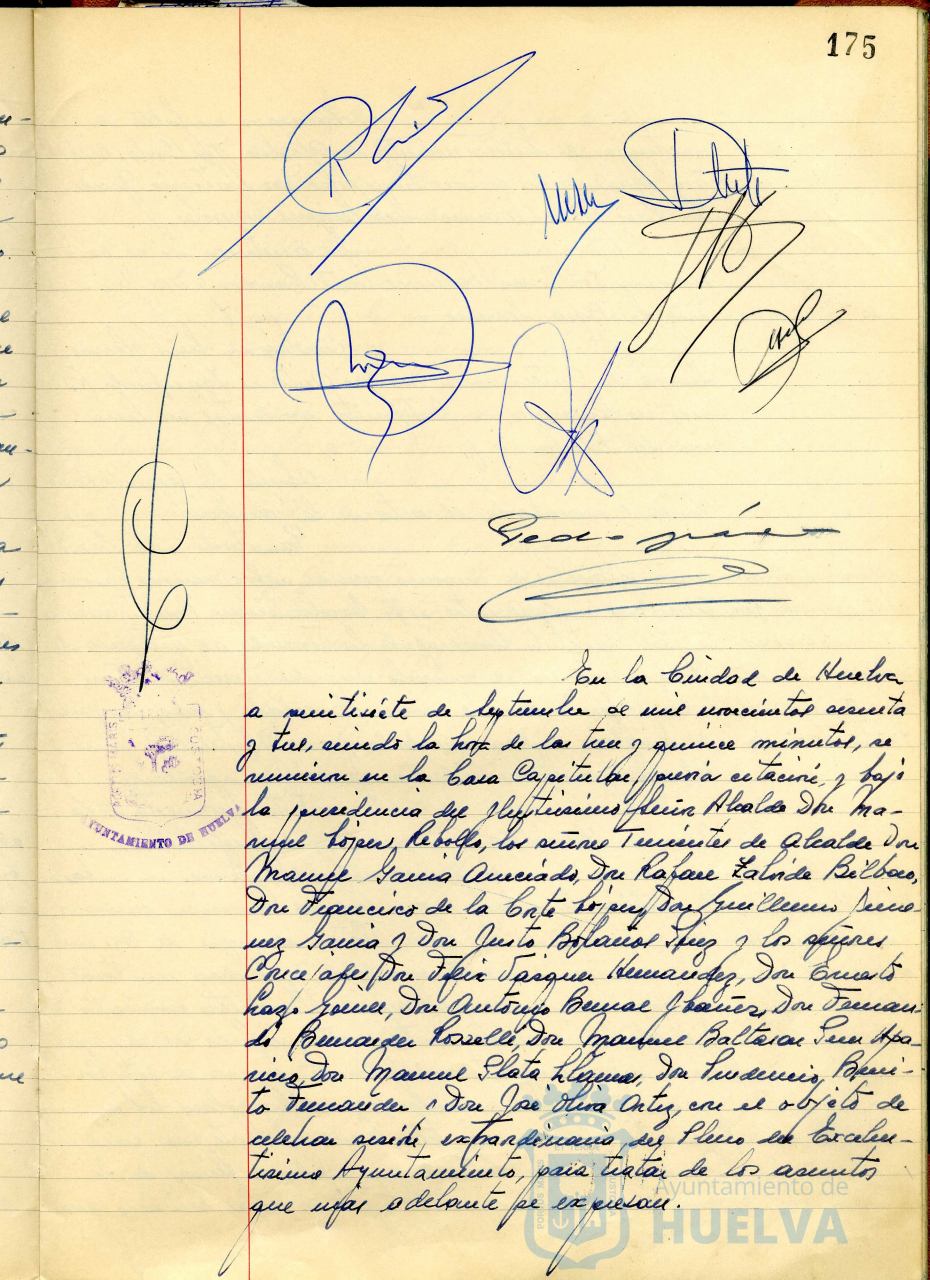 175
En la Ciudad de Huelva
a veintisiete de Septiembre de mil novecientos sesenta
y tres, siendo la hora de las tres y quince minutos, se
reunieron en la Casa Capitular, previa citación, y bajo
la presidencia del Ilustrisimo Señor Alcalde Don Ma-
nuel López Rebollo, los señores Tenientes de Alcalde Don
Manuel Garcia Aneciado, Don Rafael Zalvide Bilbao,
Don Francisco de la Corte López, Don Guillermo Jime-
nez Garcia y Don Justo Bolaños Sáez y los señores
Concejales Don Felix Vazquez Hernandez, Don Ernesto
Lazo Gómez, Don Antonio Bernal Ibañez, Don Fernan-
do Bernardez Rosselló, Don Manuel Baltasar Apa-
ricio, Don Manuel Plata Llamas, Don Prudencio Beni-
to Fernandez y Don José Oliva Ortiz, con el objeto de
celebrar sesión extraordinaria del Pleno del Excelen-
tisimo Ayuntamiento, para tratar de los asuntos
que más adelante se expresan.
AYUNTAMIENTO DE HUELVA
Ayuntamiento de
HUELVA